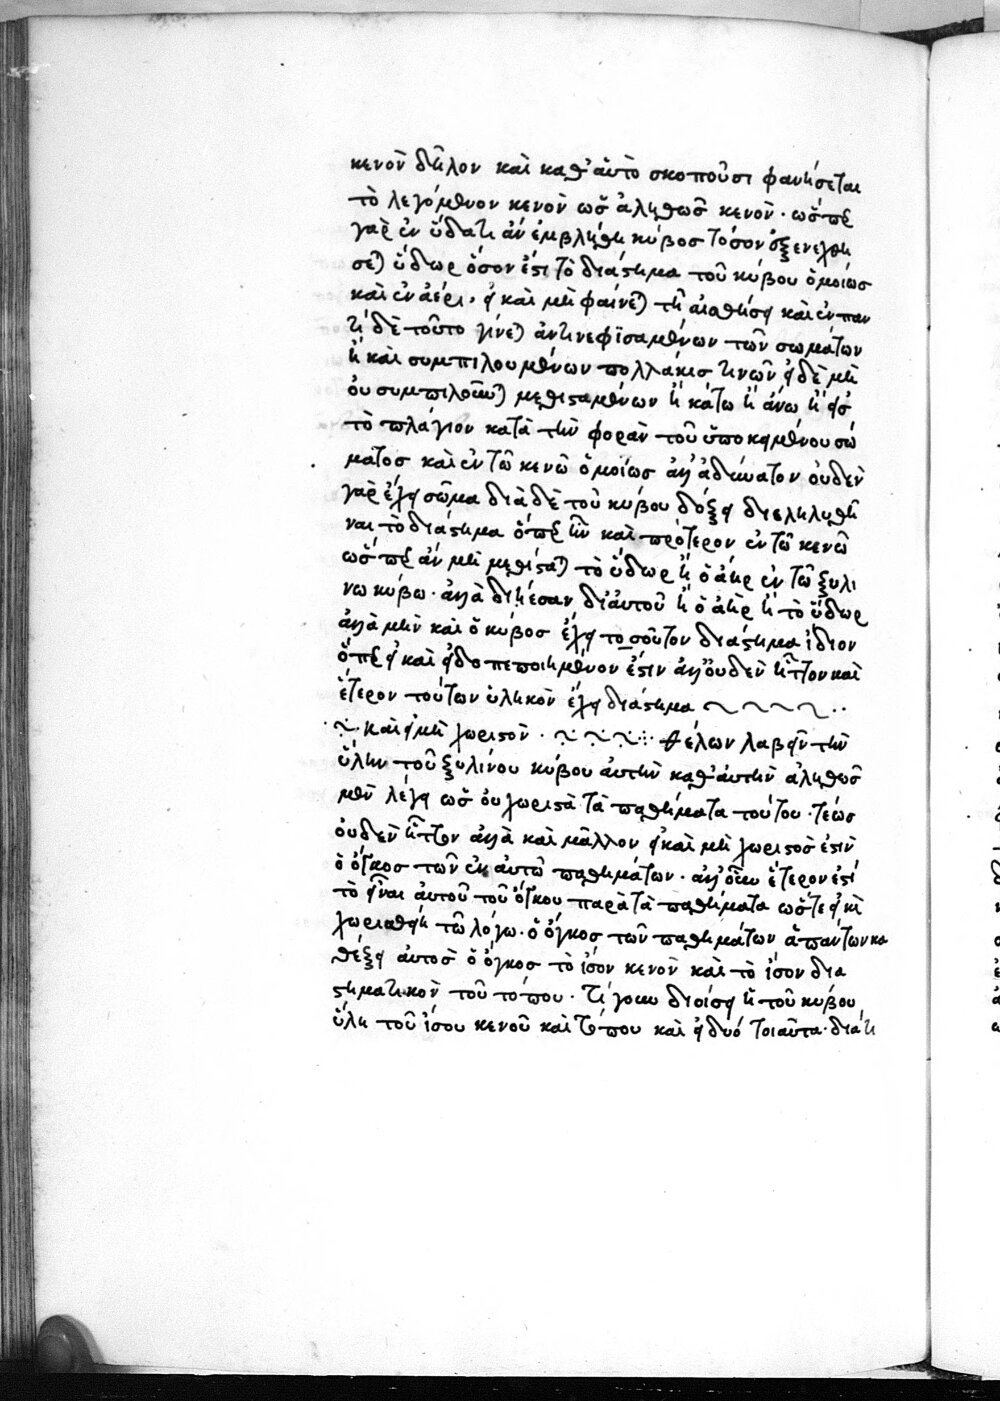 κενὸν δῆλον καὶ καθ' αὑτὸ σκοποῦσι φανήσεται
τὸ λεγόμενον κενὸν ὡς ἀληθῶς κενὸν· ὥσπερ
γὰρ ἐν ὕδατι ἂν ἐμβληθῆ κύβος τόσον ἐξενεχθή
σεται ὕδωρ ὅσον ἐστὶ τὸ διάστημα τοῦ κύβου ὁμοίως
καὶ ἐν ἀέρι, εἰ καὶ μὴ φαίνεται τῆ αἰσθήσει καὶ ἐν παν
τί δὲ τοῦτο γίνεται ἀντινεφϊσαμένων τῶν σωμάτων
ἢ καὶ συμπιλουμένων πολλάκις τινῶν εἰ δὲ μὴ
οὐ συμπιλοῦνται μεθισταμένων ἢ κάτω ἢ ἄνω ἢ εἰς
τὸ πλάγιον κατὰ τὴν φορὰν τοῦ ὑποκειμένου σώ
ματος καὶ ἐν τῶ κενῶ ὁμοίως ἀλλ' ἀδύνατον οὐδὲν
γὰρ ἔχει σῶμα διὰ δὲ τοῦ κύβου δόξει διεληλυθῆ
ναι τὸ διάστημα ὅπερ ἦν καὶ πρότερον ἐν τῶ κενῶ
ὥσπερ ἂν μὴ μεθίσταται τὸ ὕδωρ ἢ ὁ ἀὴρ ἐν τῶ ξυλί
νω κύβω· ἀλλὰ διήεσαν δι' αὐτοῦ ἢ ὁ ἀὴρ ἢ τὸ ὕδωρ
ἀλλὰ μὴν καὶ ὁ κύβος ἔχει τοσοῦτον διάστημα ἴδιον
ὅπερ εἰ καὶ εἰδοπεποιημένον ἐστὶν ἀλλ' οὐδὲν ἧττον καὶ
ἕτερον τούτων ὑλικὸν ἔχει διάστημα
καὶ εἰ μὴ χωριστὸν· θέλων λαβεῖν τὴν
ὕλην τοῦ ξυλίνου κύβου αὐτὴν καθ' αὑτὴν ἀληθῶς
μὲν λέγει ὡς οὐ χωριστὰ τὰ παθήματα τούτου· τέως
οὐδὲν ἧττον ἀλλὰ καὶ μᾶλλον εἰ καὶ μὴ χωριστὸς ἐστὶν
ὁ ὄγκος τῶν ἐν αὐτῶ παθημάτων· ἀλλ' οὖν ἕτερον ἐστί
τὸ εἶναι αὐτοῦ τοῦ ὄγκου παρὰ τὰ παθήματα ὥστε εἰ καὶ
χωρισθείη τῶ λόγω· ὁ ὄγκος τῶν παθημάτων ἁπάντων κα
θέξει αὐτὸς ὁ ὄγκος τὸ ἴσον κενὸν καὶ τὸ ἴσον δια
στηματικὸν τοῦ τόπου· τί γοῦν διοίσει ἡ τοῦ κύβου
ὕλη τοῦ ἴσου κενοῦ καὶ τόπου καὶ εἰ δυό τοιαῦτα· διὰ τί